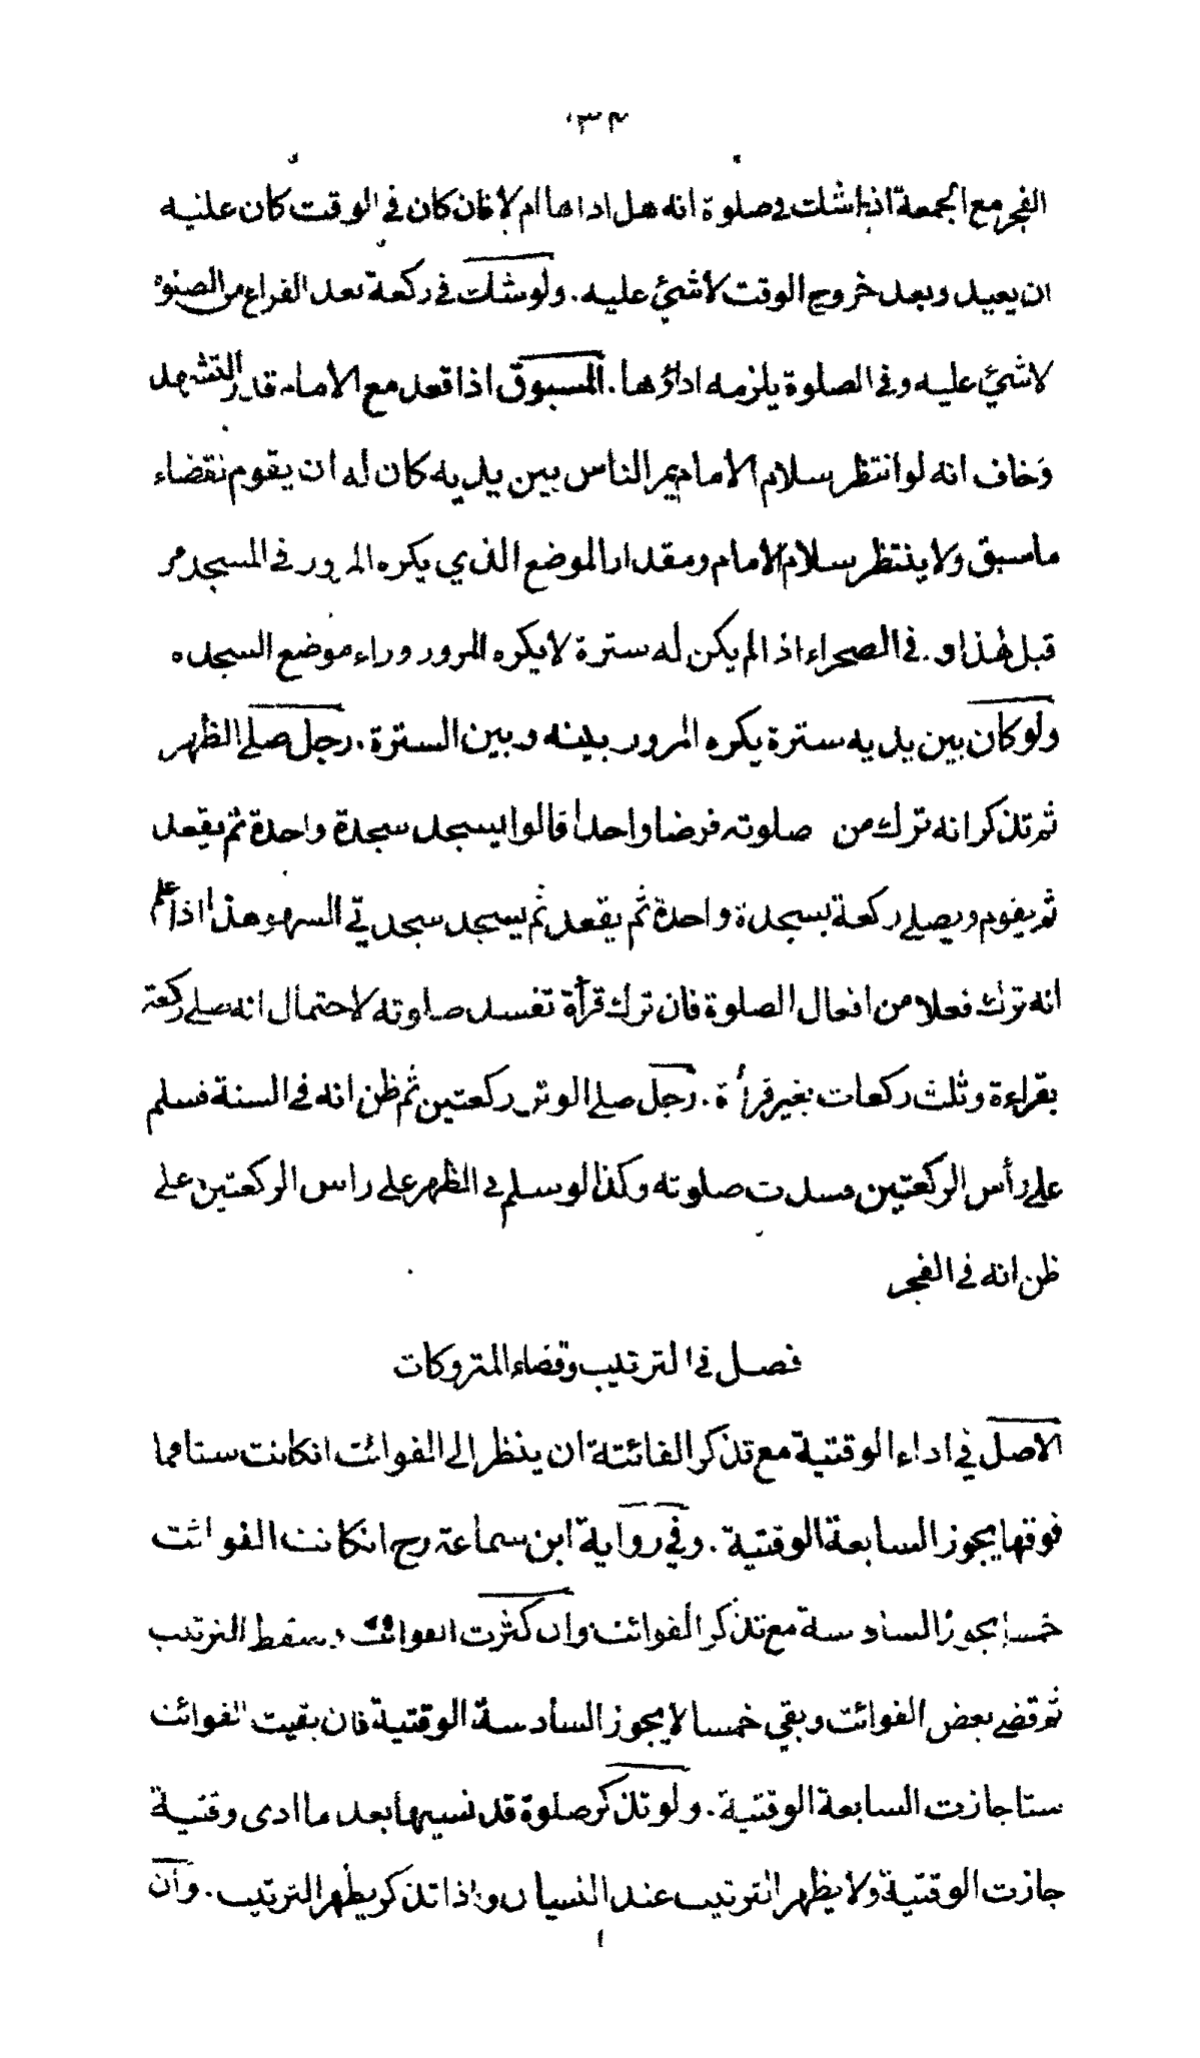 الفجر مع الجمعة اذا شك في صلوة انه هل اداها ام لا فان كان في الوقت كان عليه
ان يعيد وبعد خروج الوقت لا شئ عليه. ولو شك في ركعة بعد الفراغ من الصلوة
لا شئ عليه وفي الصلوة يلزمه اداؤها. المسبوق اذا قعد مع الامام قدر التشهد
وخاف انه لو انتظر سلام الامام يمر الناس بين يديه كان له ان يقوم لقضاء
ما سبق ولا ينتظر سلام الامام ومقدار الموضع الذي يكره المرور في المسجد مر
قبل هذا و. في الصحراء اذا لم يكن له سترة لا يكره المرور وراء موضع السجده
ولو كان بين يديه سترة يكره المرور بينه وبين السترة. رجل صلى الظهر
ثم تذكر انه ترك من صلوته فرضا واحدا قالوا يسجد سجدة واحدة ثم يقعد
ثم يقوم ويصلي ركعة بسجدة واحدة ثم يقعد ثم يسجد سجدتي السهو هذا اذا علم
انه ترك فعلا من افعال الصلوة فان ترك قرأة تفسد صلوته لاحتمال انه صلى ركعة
بقراءة وثلث ركعات بغير قرأة. رجل صلى الوتر ركعتين ثم ظن انه في السنة فسلم
على رأس الركعتين فسدت صلوته وكذا لو سلم في الظهر على راس الركعتين على
ظن انه في الفجر
فصل في الترتيب وقضاء المتروكات
الاصل في اداء الوقتية مع تذكر الفائتة ان ينظر الى الفوائت انكانت ستا مما
فوقها يجوز السابعة الوقتية. وفي رواية ابن سماعة رح انكانت الفوائت
خمسا يجوز السادسة مع تذكر الفوائت وان كثرت الفوائت وسقط الترتيب
ثم قضى بعض الفوائت وبقي خمسا لا يجوز السادسة الوقتية فان بقيت الفوائت
ستا جازت السابعة الوقتية. ولو تذكر صلوة قد نسيها بعد ما ادى وقتية
جازت الوقتية ولا يظهر الترتيب عند النسيان واذا تذكر يظهر الترتيب. وان